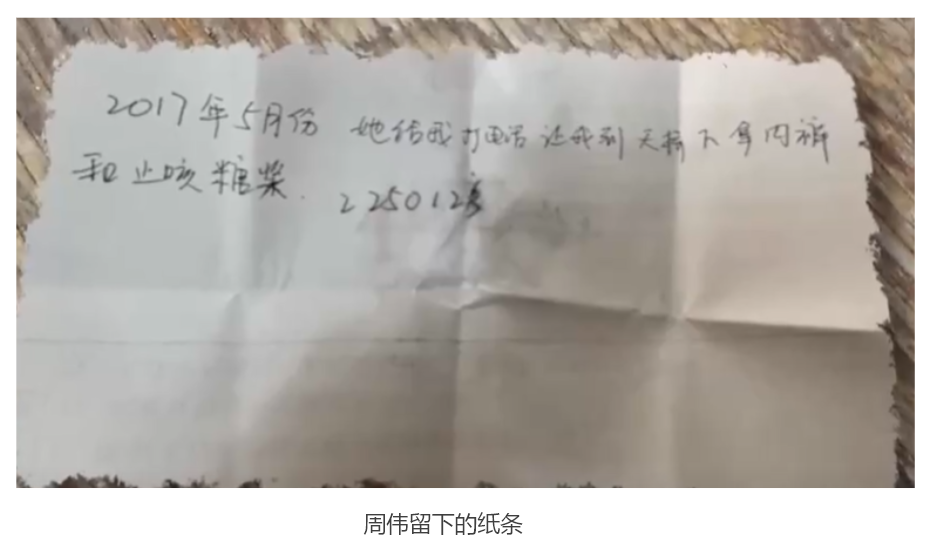 2017年5月份 她给我打电话 让我到天桥下拿内裤
和止咳糖浆. 225012
周伟留下的纸条